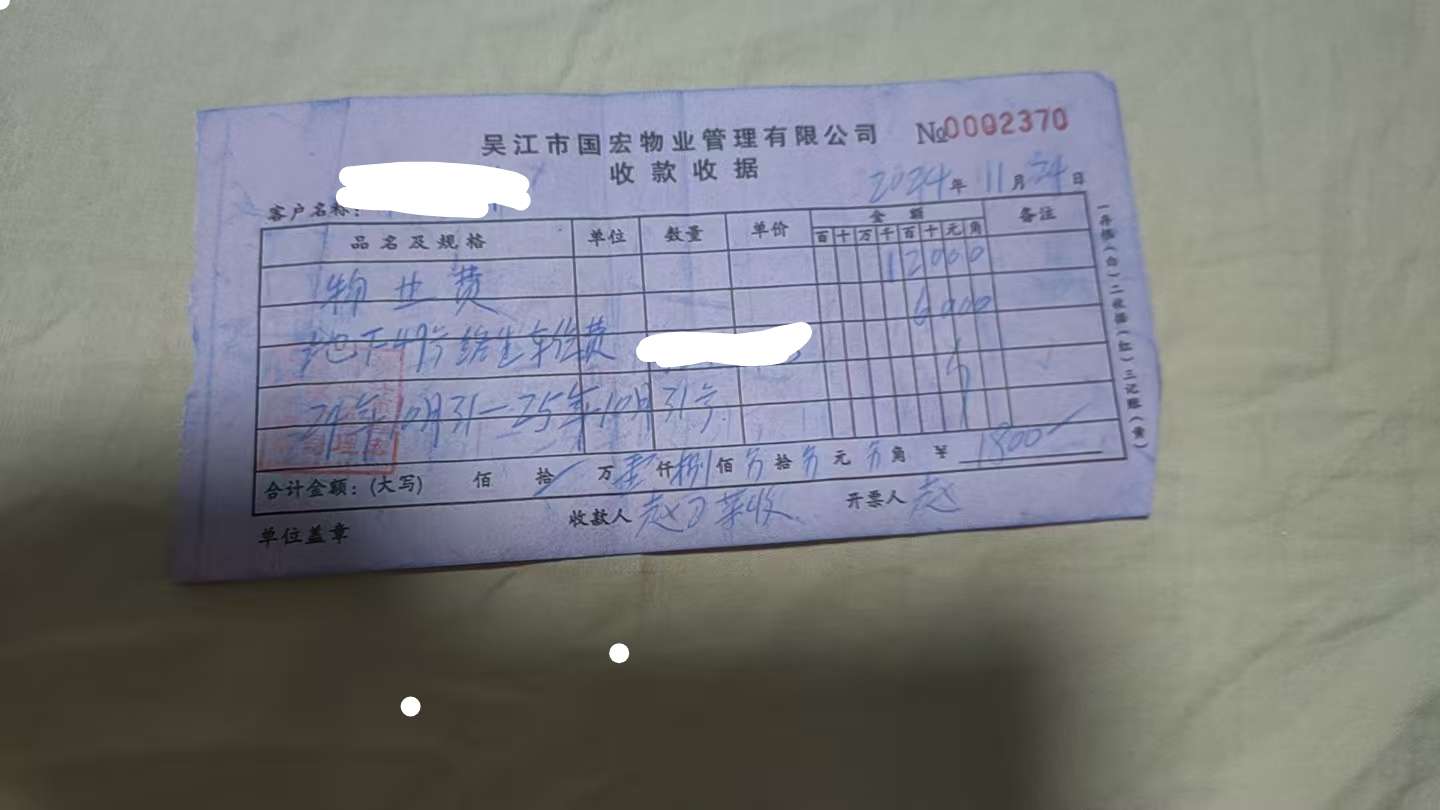 吴江市国宏物业管理有限公司 №0002370
收款收据
2024年 11月 24日
客户名称:
品名及规格 单位 数量 单价 金额 备注
百 十 万 千 百 十 元 角
物业费 12000
地下49号 车位费 6000
24年10月31—25年10月31号
合计金额:(大写) 佰 拾 万 壹仟捌佰 拾 元 角 ¥ 1800
单位盖章 收款人 赵 收 开票人 赵
一存根(白)二收据(红)三记账(黄)